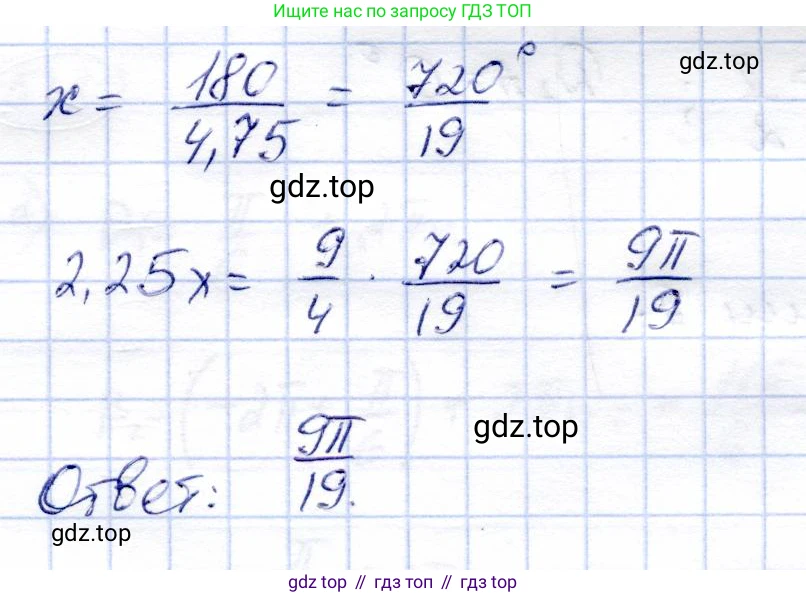 Ищите нас по запросу ГДЗ ТОП
gdz.top
x = 180/4,75 = 720°/19
gdz.top
2,25x = 9/4 · 720/19 = 9π/19
gdz.top
Ответ: 9π/19.
gdz.top
gdz top // гдз топ // gdz top